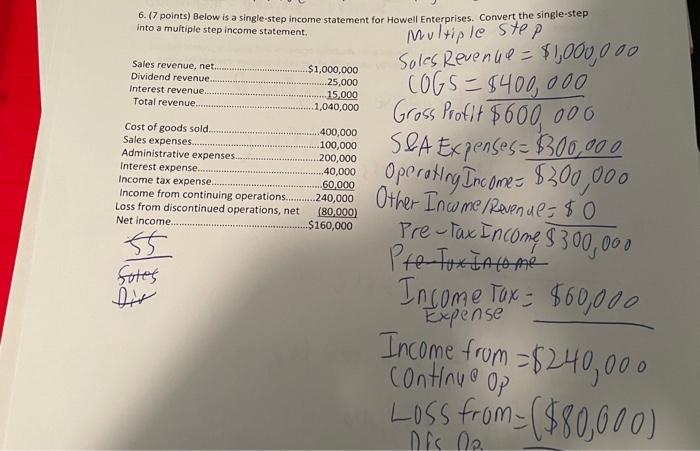 6. (7 points) Below is a single-step income statement for Howell Enterprises. Convert the single-step
into a multiple step income statement.
Sales revenue, net..............................$1,000,000
Dividend revenue..............................25,000
Interest revenue..............................15,000
Total revenue..............................1,040,000
Cost of goods sold..............................400,000
Sales expenses..............................100,000
Administrative expenses..............................200,000
Interest expense..............................40,000
Income tax expense..............................60,000
Income from continuing operations..........240,000
Loss from discontinued operations, net (80,000)
Net income..............................$160,000
SS
Sales
Div
Multiple Step
Sales Revenue = $1,000,000
COGS = $400,000
Gross Profit $600,000
S&A Expenses = $300,000
Operating Income = $300,000
Other Income/Revenue = $0
Pre-Tax Income $300,000
Pre-Tax Income
Income Tax = $60,000
Expense
Income from = $240,000
Continue Op
Loss from = ($80,000)
Dis Op.